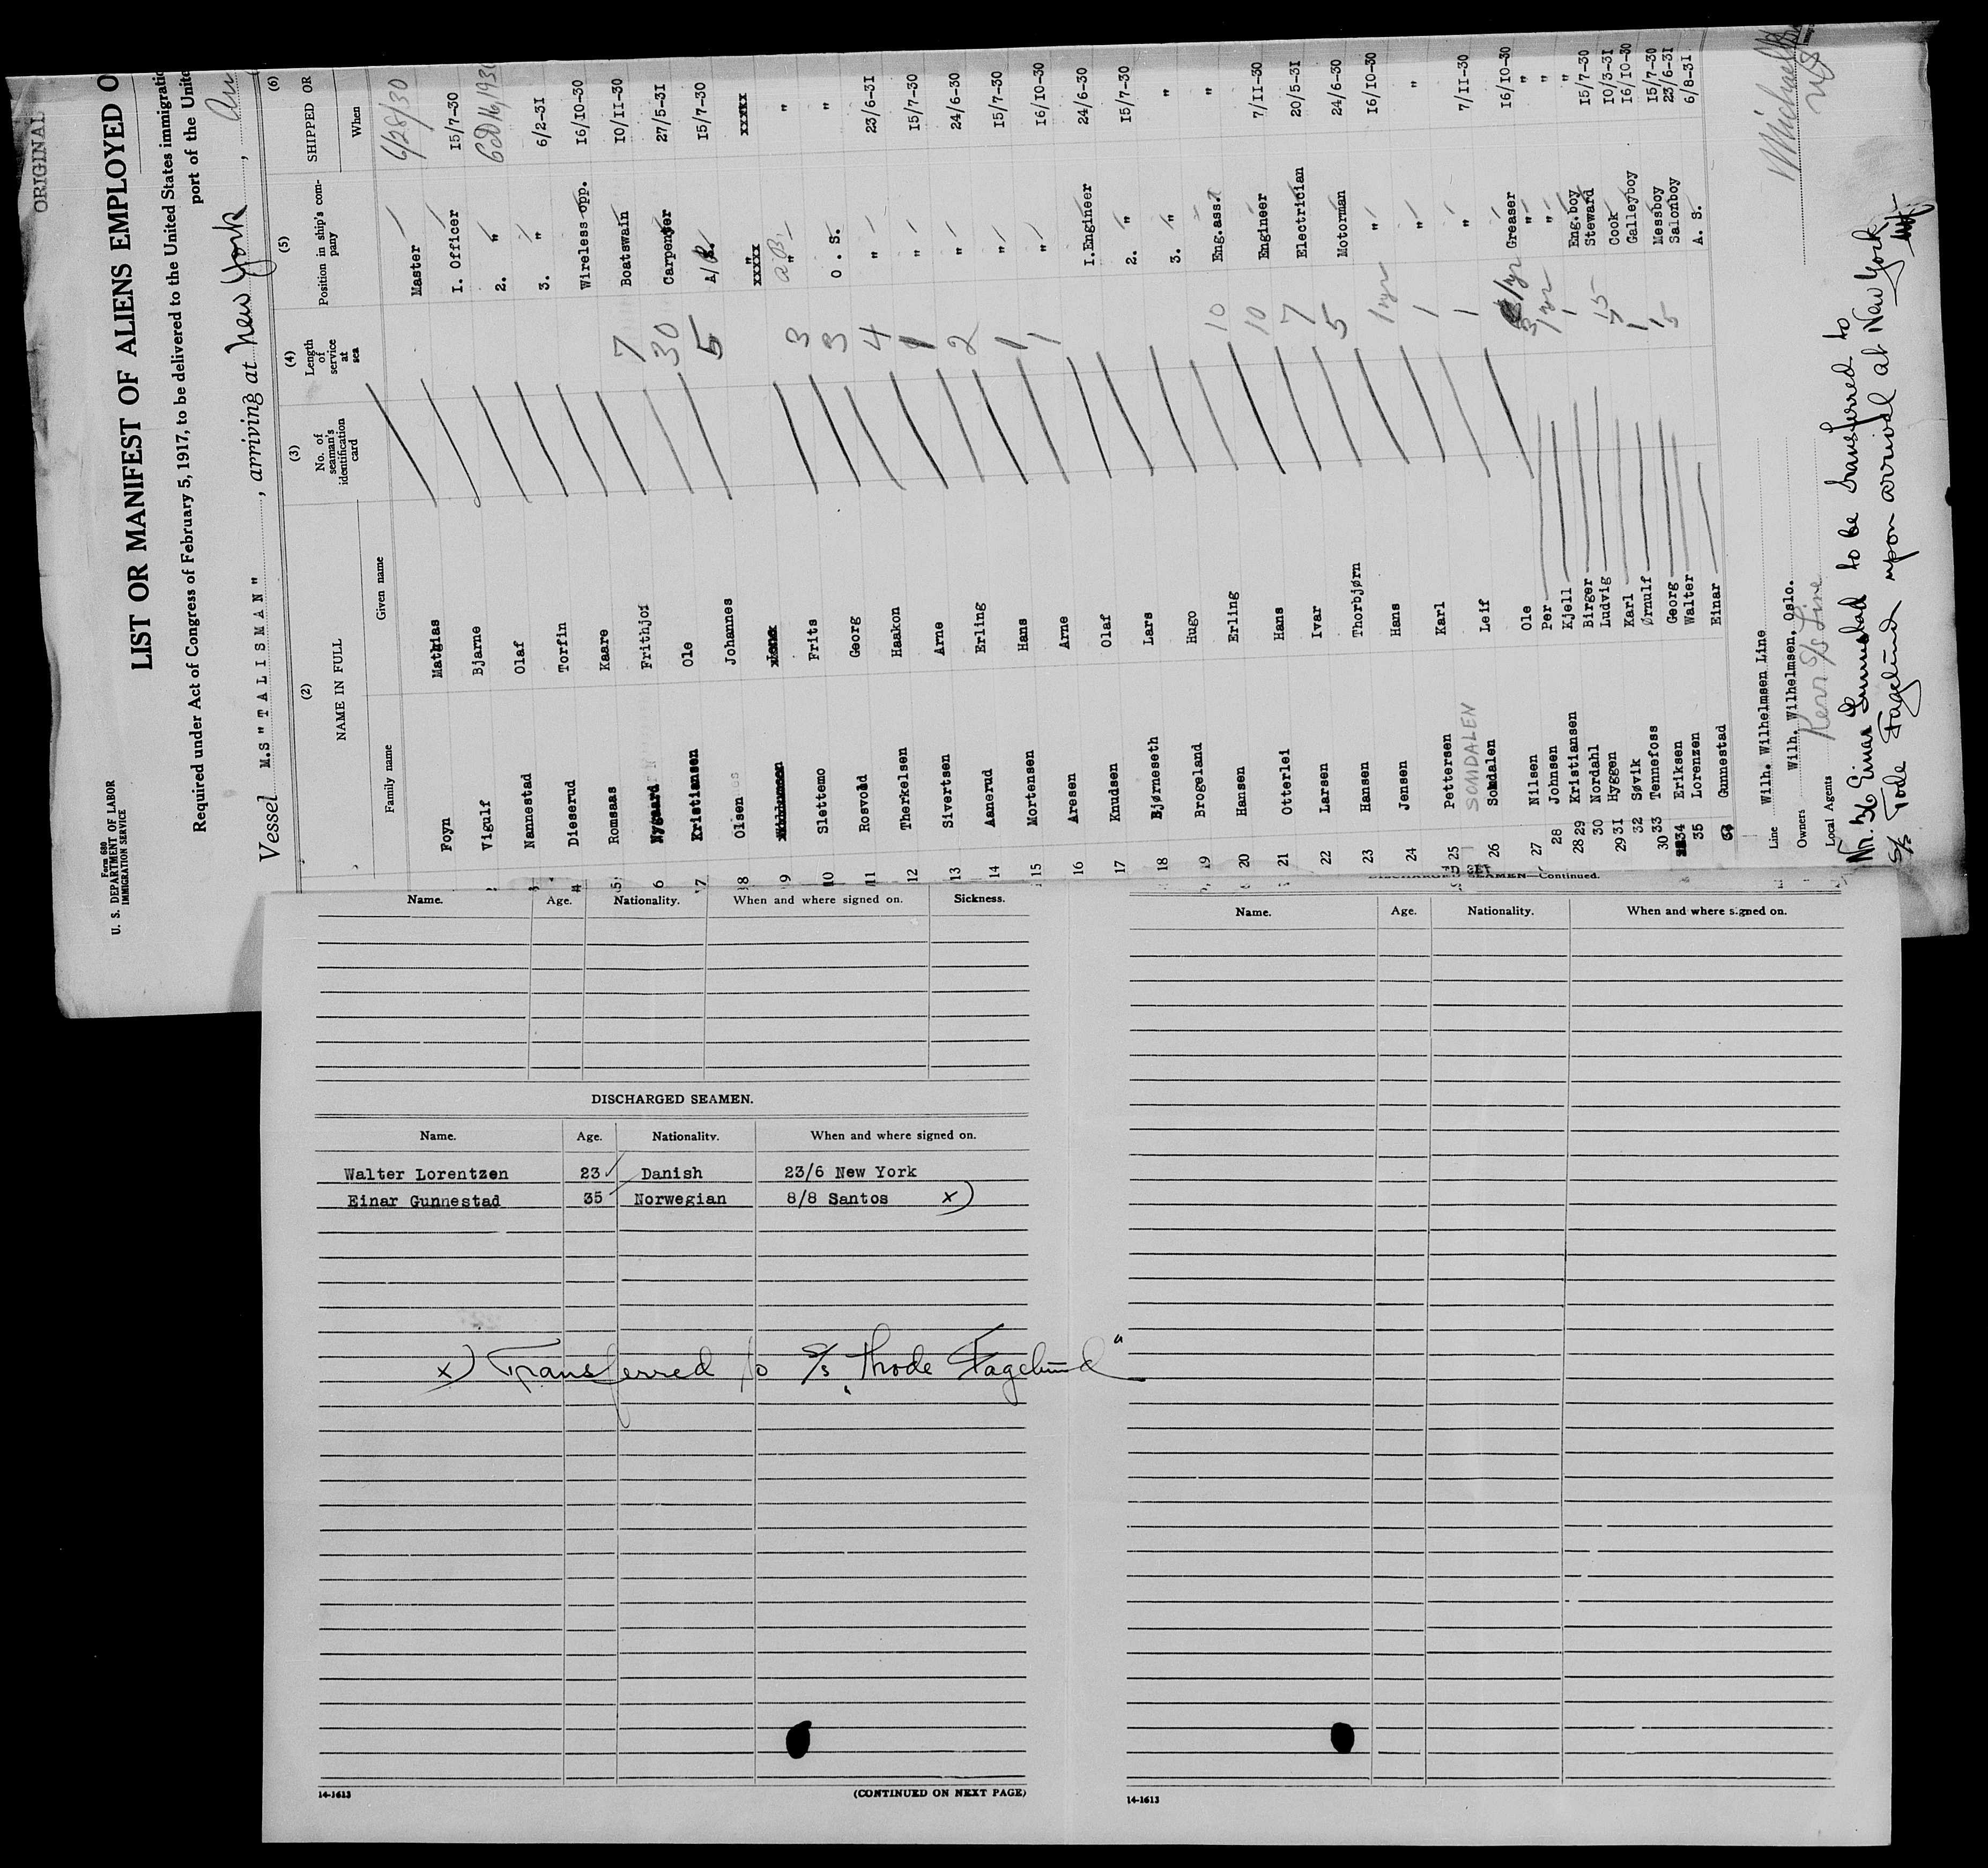 ORIGINAL
Form 680
U. S. DEPARTMENT OF LABOR
IMMIGRATION SERVICE
LIST OR MANIFEST OF ALIENS EMPLOYED O
Required under Act of Congress of February 5, 1917, to be delivered to the United States immigratio
port of the Unite
Vessel M.S "TALISMAN", arriving at New York,
(2) (3) (4) (5) (6)
NAME IN FULL No. of seaman's identification card Length of service at sea Position in ship's company SHIPPED OR
Family name Given name When
Foyn Mathias Master 6/28/30
Vigulf Bjarne I. Officer 15/7-30
3 Nannestad Olaf 2. "
4 Dieserud Torfin 3. " 6/2-31
5 Romsaas Kaare Wireless opp. 16/10-30
6 Nygaard Frithjof 7 Boatswain 10/11-30
7 Kristiansen Ole 30 Carpenter 27/5-31
8 Olsen Johannes 5 A/B. 15/7-30
9 xxxxx xxxxx
10 Slettemo Frits 3 " "
11 Rosvold Georg 3 O. S. "
12 Therkelsen Haakon 4 " 23/6-31
13 Sivertsen Arne 1 " 15/7-30
14 Aanerud Erling 2 " 24/6-30
15 Mortensen Hans 1 " 15/7-30
16 Aresen Arne 1 " 16/10-30
17 Knudsen Olaf I.Engineer 24/6-30
18 Bjørneseth Lars 2. " 15/7-30
19 Brogeland Hugo 3. " "
20 Hansen Erling 10 Eng.ass. "
21 Otterlei Hans 10 Engineer 7/11-30
22 Larsen Ivar 7 Electrician 20/5-31
23 Hansen Thorbjørn 5 Motorman 24/6-30
24 Jensen Hans 1 yr " 16/10-30
25 Pettersen Karl 1 " "
SOMDALEN
26 Somdalen Leif 1 " 7/11-30
27 Nilsen Ole 1 yr Greaser 16/10-30
28 Johnsen Per 3 " "
28 29 Kristiansen Kjell 1 yr " "
30 Nordahl Birger 1 Eng.boy "
29 31 Hyggen Ludvig 15 Steward 15/7-30
32 Søvik Karl 7 Cook 10/3-31
30 33 Tennefoss Ørnulf 1 Galleyboy 16/10-30
34 Eriksen Georg 1 Messboy 15/7-30
35 Lorenzen Walter 5 Salonboy 23/6-31
Gunnestad Einar A. S. 6/8-31
Line Wilh. Wilhelmsen Line
Owners Wilh. Wilhelmsen, Oslo.
Local Agents Kerr S/s Line
Nr. 36 Einar Gunnestad to be transferred to
S/s Tode Fagelund upon arrival at New York
Name. Age. Nationality. When and where signed on. Sickness.
DISCHARGED SEAMEN.
Name. Age. Nationality. When and where signed on.
Walter Lorentzen 23 Danish 23/6 New York
Einar Gunnestad 35 Norwegian 8/8 Santos x)
x) Transferred to S/s "Thode Fagelund"
14-1613 (CONTINUED ON NEXT PAGE)
DISCHARGED SEAMEN—Continued.
Name. Age. Nationality. When and where signed on.
14-1613